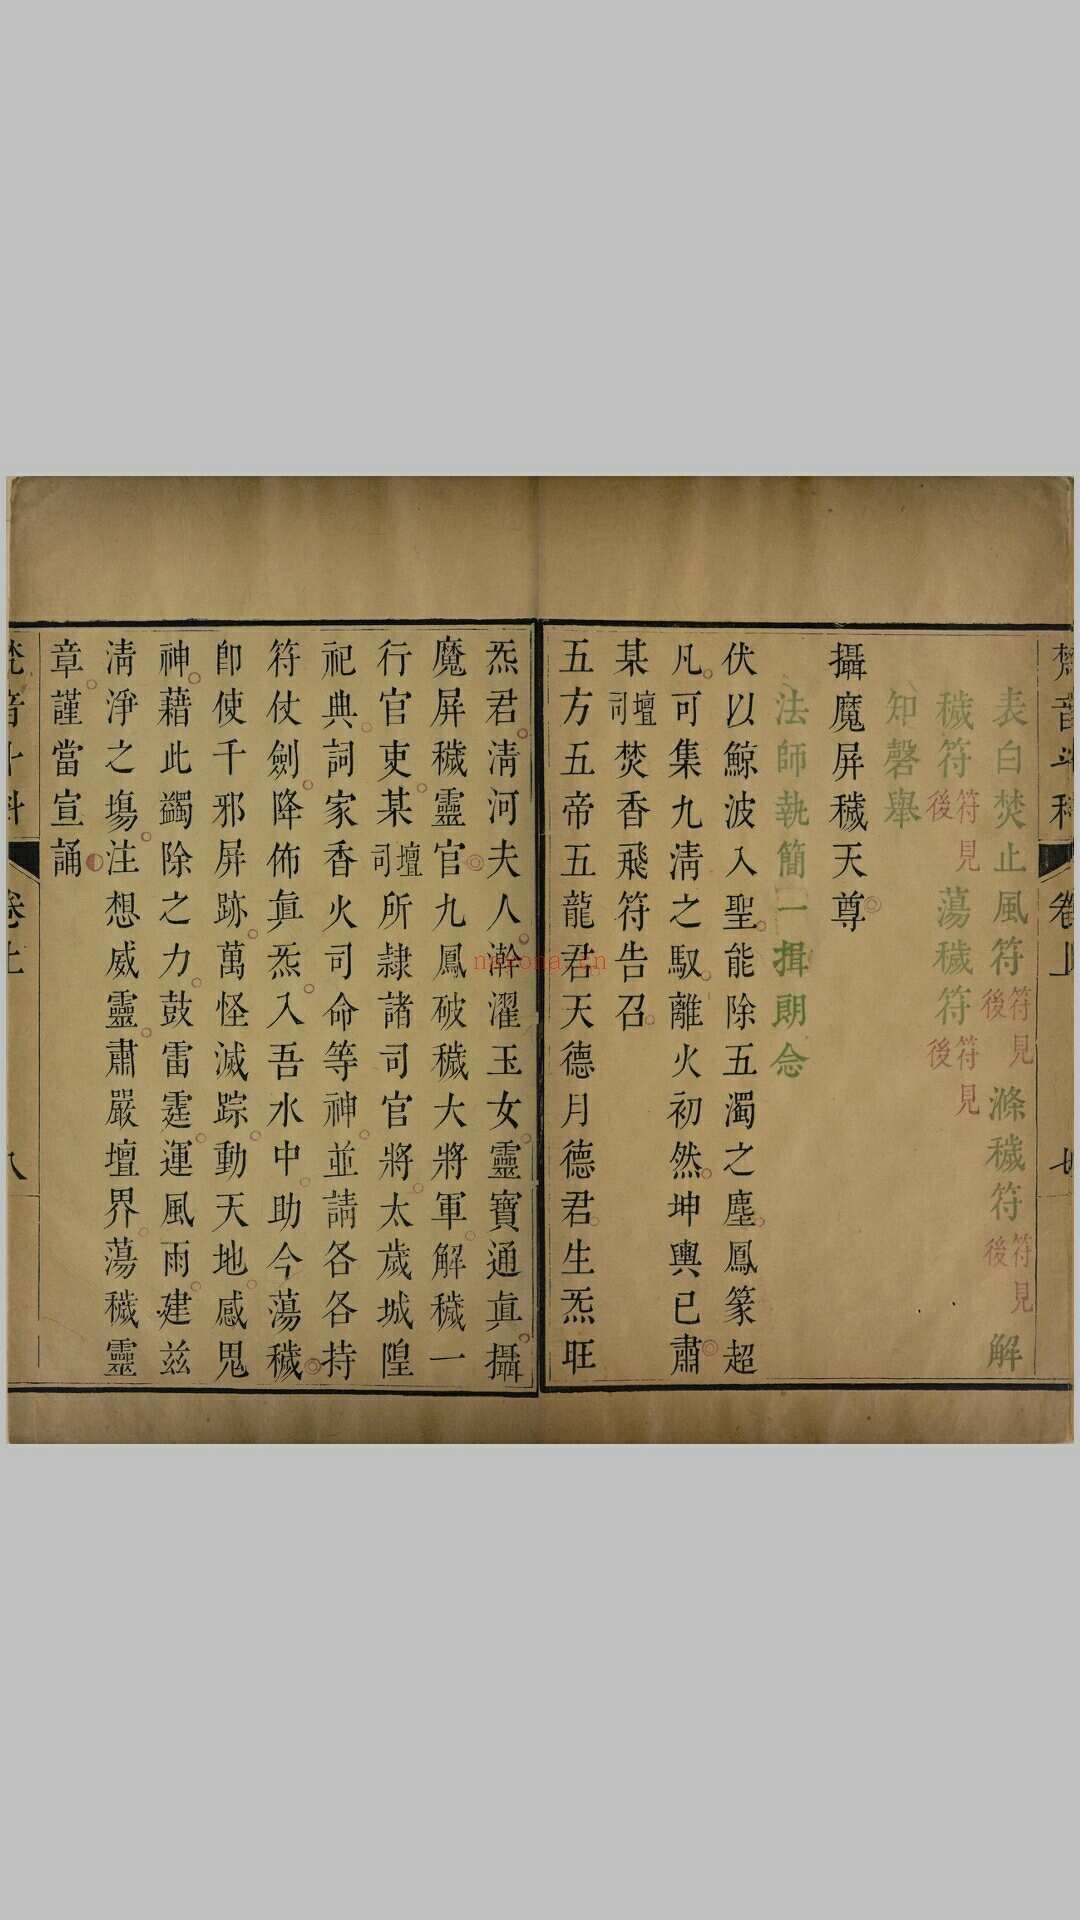 梵音斗科 卷上
表白焚止風符符見後 滌穢符符見後 解
穢符符見後 蕩穢符符見後
知磬舉
攝魔屏穢天尊
法師執簡一揖朗念
伏以鯨波入聖能除五濁之塵鳳篆超
凡可集九清之馭離火初然坤輿已肅
某壇司焚香飛符告召
五方五帝五龍君天德月德君生炁旺
炁君清河夫人澣濯玉女靈寶通真攝
魔屏穢靈官九鳳破穢大將軍解穢一
行官吏某壇司所隷諸司官將太歲城隍
祀典詞家香火司命等神並請各各持
符仗劍降佈真炁入吾水中助今蕩穢
即使千邪屏跡萬怪滅踪動天地感鬼
神藉此蠲除之力鼓雷霆運風雨建兹
清淨之塲注想威靈肅嚴壇界蕩穢靈
章謹當宣誦
梵音斗科 卷上 八
nayona.cn